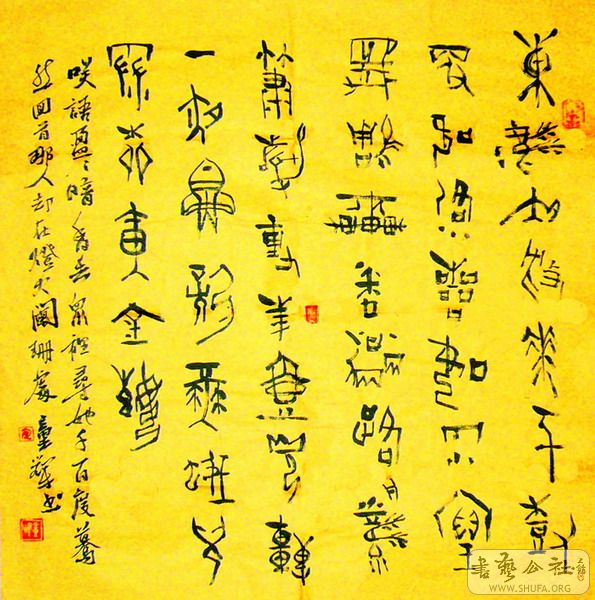 東風夜放花千樹
更吹落星如雨寶
馬雕車香滿路鳳
簫聲動玉壺光轉
一夜魚龍舞蛾兒
雪柳黃金縷
笑語盈々暗香去眾裡尋她千百度驀
然回首那人却在燈火闌珊處
书艺公社
WWW.SHUFA.ORG